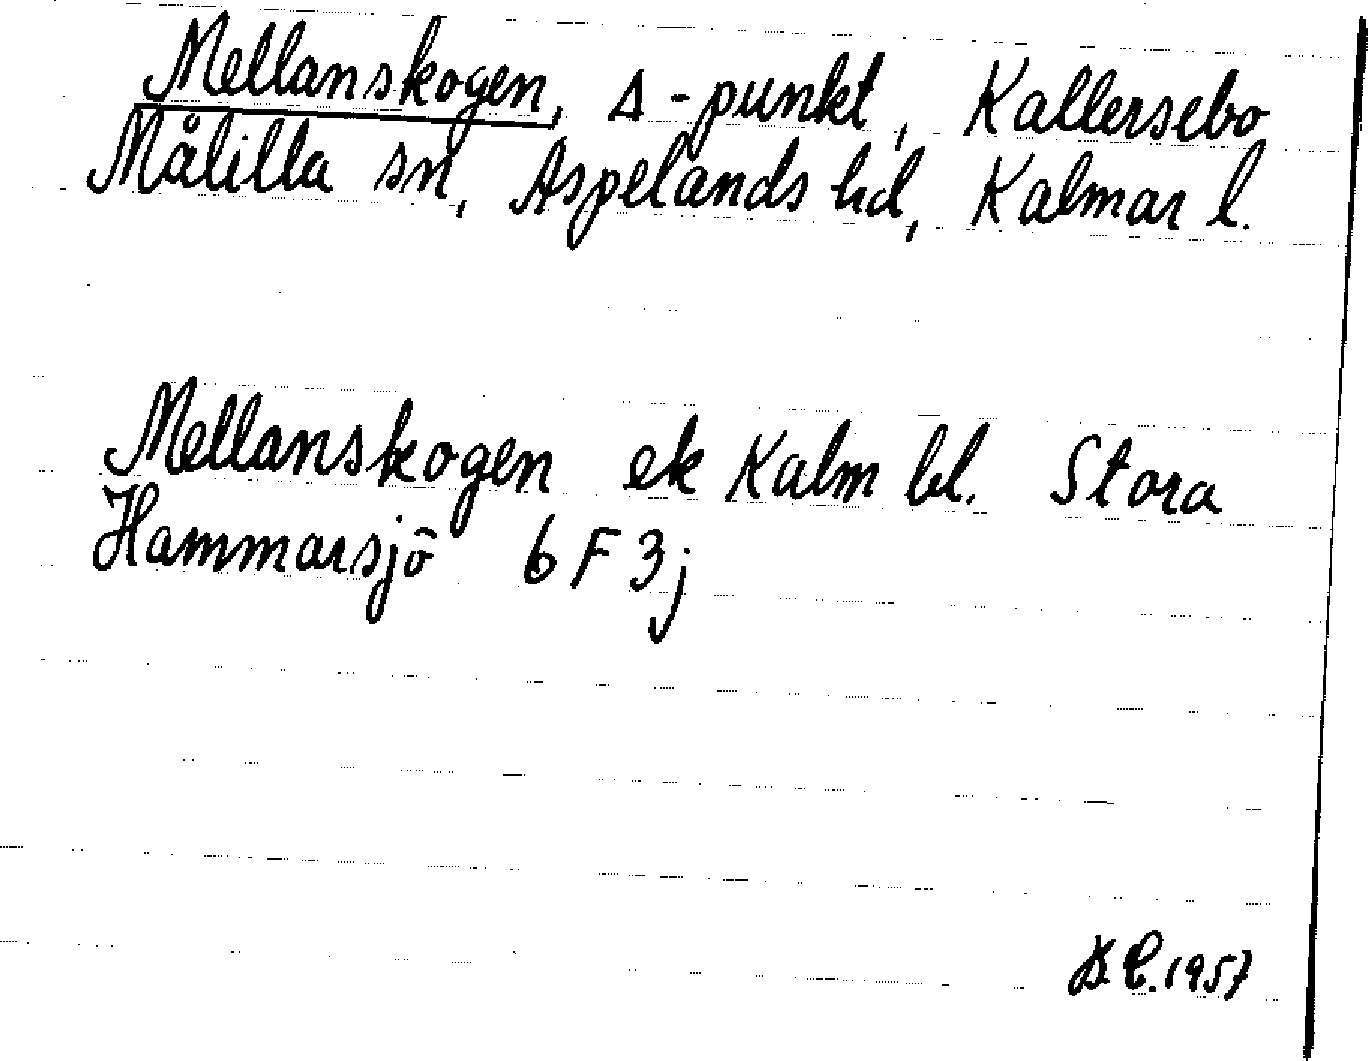 Mellanskogen, Δ-punkt, Kallersebo
Målilla sn, Aspelands hd, Kalmar l.
Mellanskogen ek Kalm bl. Stora
Hammarsjö 6F3j
1957